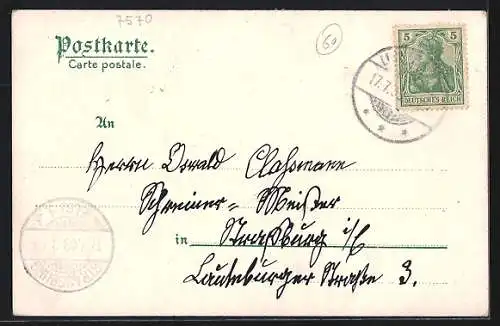 7570
60
Postkarte.
Carte postale.
5 5
DEUTSCHES REICH
17.7.
An
Herrn Oswald Claßmann
Schreiner-Meister
in Straßburg i/E
Lauteburger Straße 3.